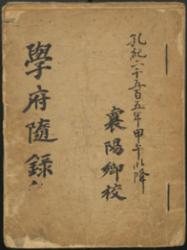 孔紀二千五百五年甲午以降
襄陽鄉校
學府隨錄